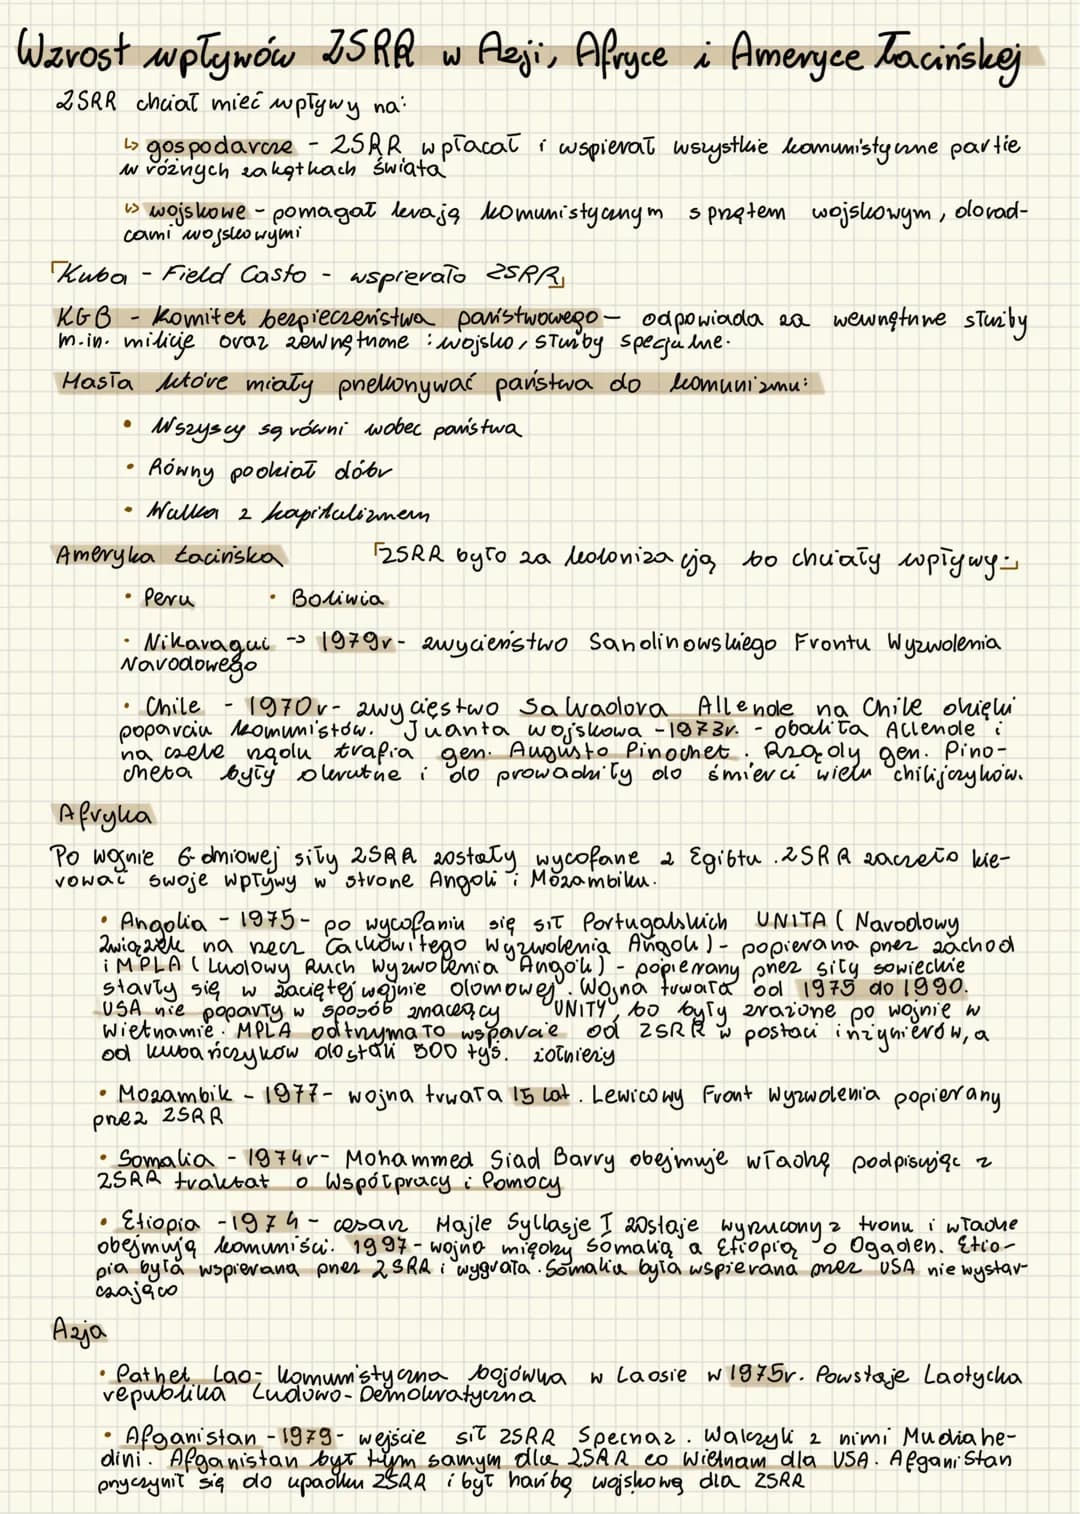 Wzrost wpływów ZSRR w Azji, Afryce i Ameryce Łacińskej
ZSRR chciał mieć wpływy na:
↳ gospodarcze - ZSRR wpłacał i wspierał wszystkie komunistyczne partie
w różnych zakątkach świata
↳ wojskowe - pomagał krają komunistycznym sprzętem wojskowym, dorad-
cami wojskowymi
Kuba - Field Casto - wspierało ZSRR
KGB - Komitet bezpieczeństwa państwowego - odpowiada za wewnętrzne służby
m.in. milicje oraz zewnętrzne : wojsko, służby specjalne.
Hasła które miały przekonywać państwa do komunizmu:
• Wszyscy są równi wobec państwa
• Równy podział dóbr
• Walka z kapitalizmem
Ameryka Łacińska ZSRR było za kolonizacją bo chciały wpływy
• Peru • Boliwia
• Nikaragui -> 1979r - zwycieństwo Sandinowskiego Frontu Wyzwolenia
Narodowego
• Chile - 1970r - zwycięstwo Salvadora Allende na Chile dzięki
poparciu komunistów. Juanta wojskowa - 1973r. - obaliła Allende i
na czele rządu trafia gen. Augusto Pinochet. Rządy gen. Pino-
cheta były okrutne i do prowadziły do śmierci wielu chilijczyków.
Afryka
Po wojnie 6-dniowej siły ZSRR zostały wycofane z Egibtu. ZSRR zaczeło kie-
rować swoje wpływy w strone Angoli i Mozambiku.
• Angolia - 1975 - po wycofaniu się sił Portugalskich UNITA (Narodowy
Związek na rzecz Całkowitego Wyzwolenia Angoli) - popierana przez zachod
i MPLA (Ludowy Ruch Wyzwolenia Angoli) - popierany przez siły sowieckie
starły się w zaciętej wojnie domowej. Wojna trwała od 1975 do 1990.
USA nie poparły w sposób znaczący UNITY, bo były zrażone po wojnie w
Wietnamie. MPLA odtrzymało wsparcie od ZSRR w postaci inżynierów, a
od kubańczyków dostali 500 tyś. żołnierzy
• Mozambik - 1977 - wojna trwała 15 lat. Lewicowy Front Wyzwolenia popierany
przez ZSRR
• Somalia - 1974r - Mohammed Siad Barry obejmuje władzę podpisując z
ZSRR traktat o Współpracy i Pomocy
• Etiopia - 1974 - cesarz Majle Syllasje I zostaje wyrzucony z tronu i władze
obejmują komuniści. 1997 - wojna między Somalią a Etiopią o Ogaden. Etio-
pia była wspierana przez ZSRR i wygrała. Somalia była wspierana przez USA nie wystar-
czająco
Azja
• Pathet Lao - komunistyczna bojówka w Laosie w 1975r. Powstaje Laotycka
republika Ludowo-Demokratyczna
• Afganistan - 1979 - wejście sił ZSRR Specnaz. Walczyli z nimi Mudżahe-
dini. Afganistan był tym samym dla ZSRR co Wietnam dla USA. Afganistan
przyczynił się do upadku ZSRR i był hańbą wojskową dla ZSRR